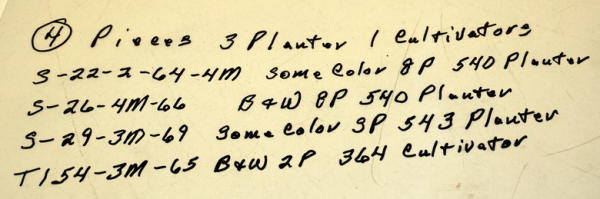 ④ Pieces 3 Planter 1 Cultivators
S-22-2-64-4M Some Color 8P 540 Planter
S-26-4M-66 B&W 8P 540 Planter
S-29-3M-69 Some Color SP 543 Planter
T154-3M-65 B&W 2P 364 Cultivator